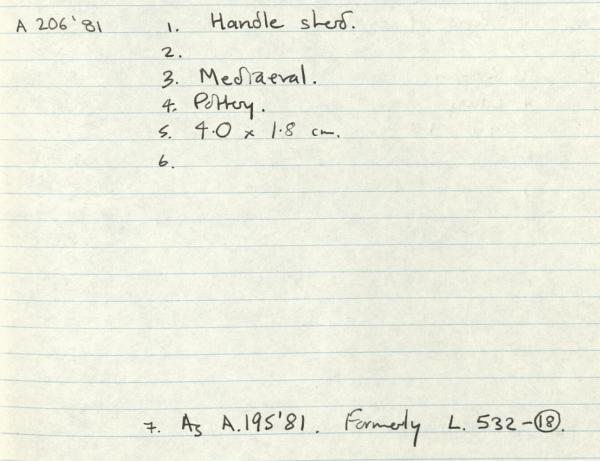 A 206'81 1. Handle sherd.
2.
3. Mediaeval.
4. Pottery.
5. 4.0 x 1.8 cm.
6.
7. As A.195'81. Formerly L. 532-18.